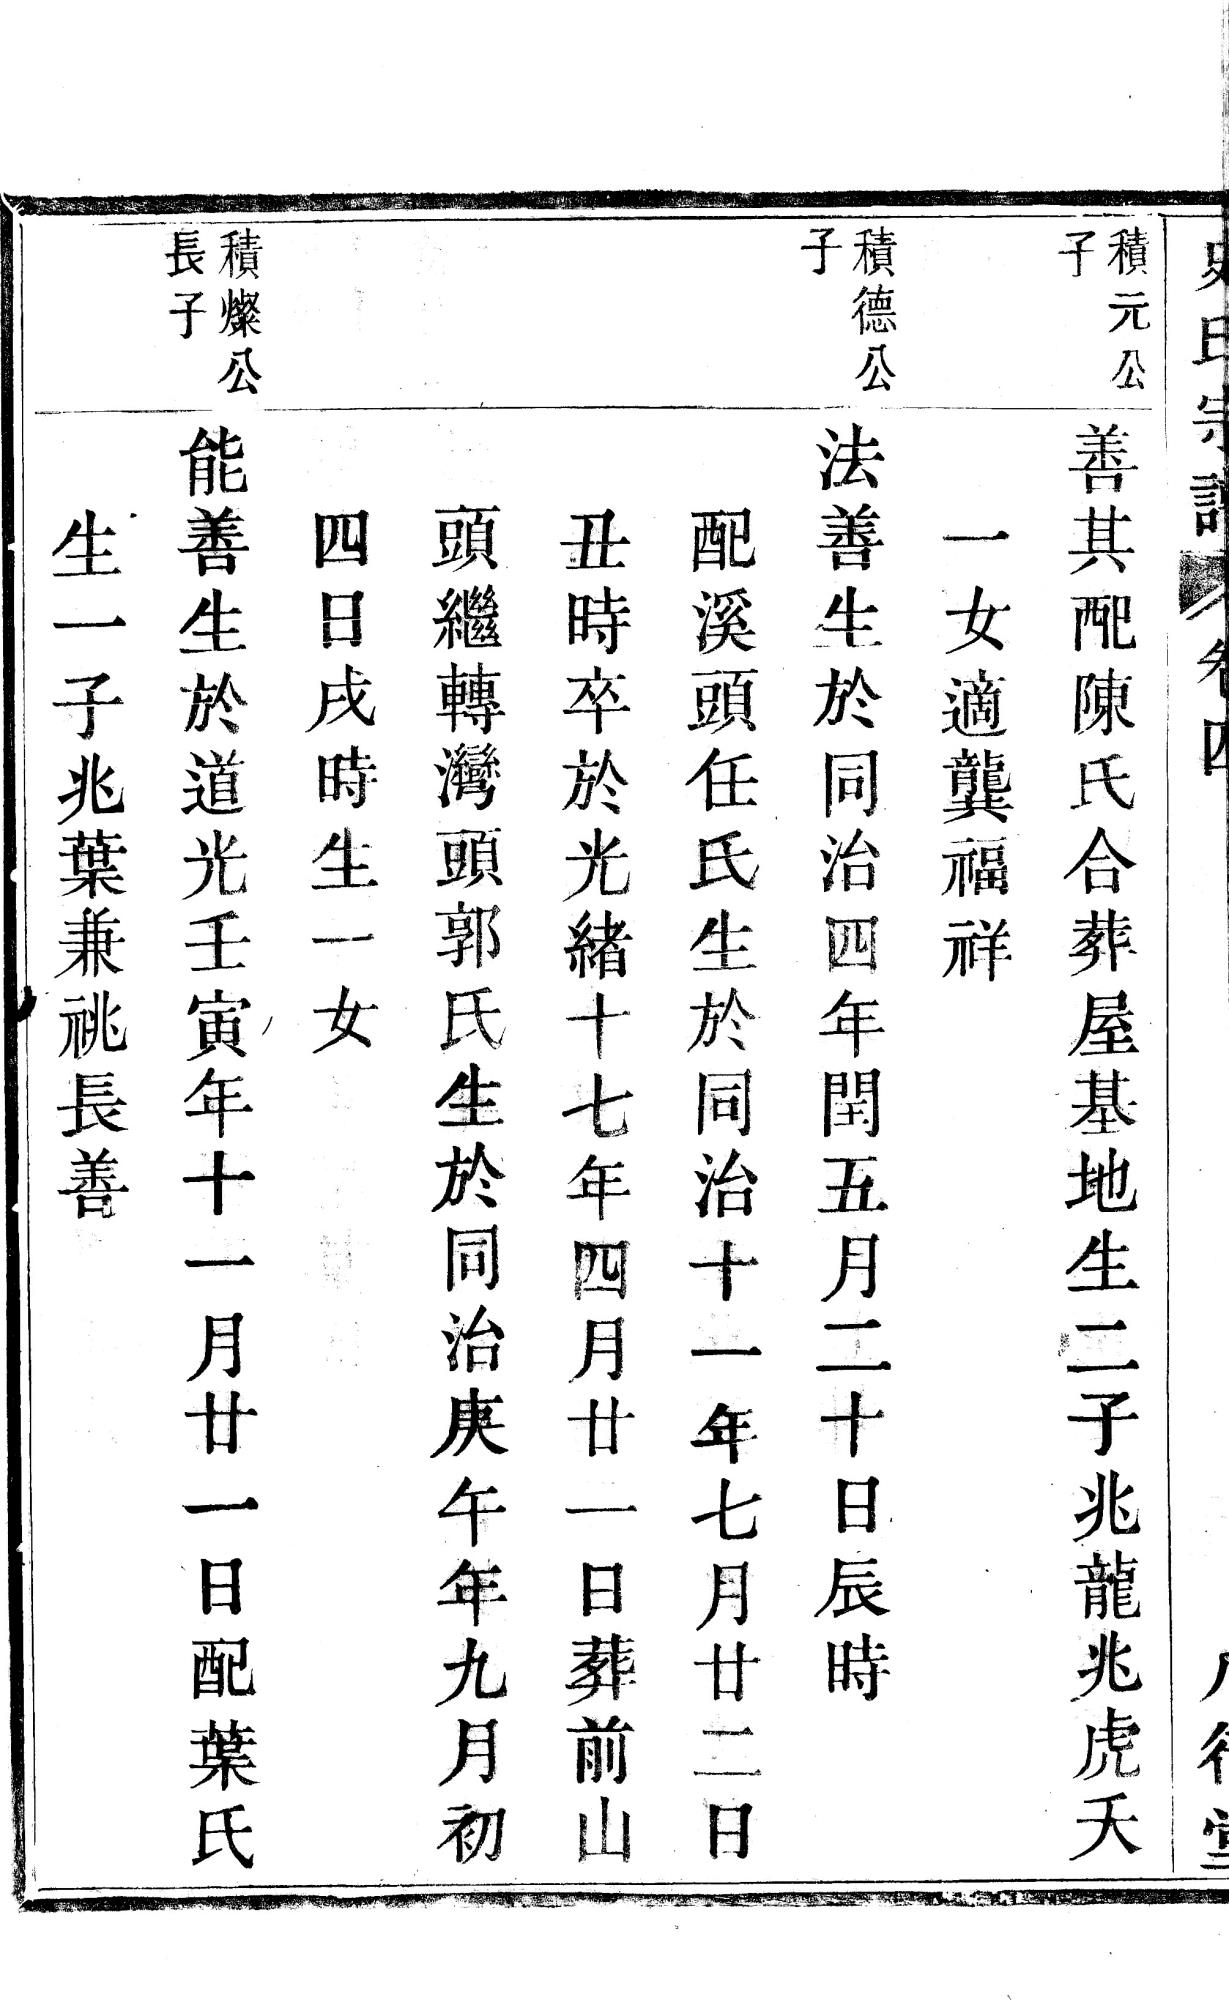 氏宗譜 卷四
積元公
子
善其配陳氏合葬屋基地生二子兆龍兆虎夭
一女適龔福祥
積德公
子
法善生於同治四年閏五月二十日辰時
配溪頭任氏生於同治十一年七月廿二日
丑時卒於光緒十七年四月廿一日葬前山
頭繼轉灣頭郭氏生於同治庚午年九月初
四日戌時生一女
積燦公
長子
能善生於道光壬寅年十一月廿一日配葉氏
生一子兆葉兼祧長善